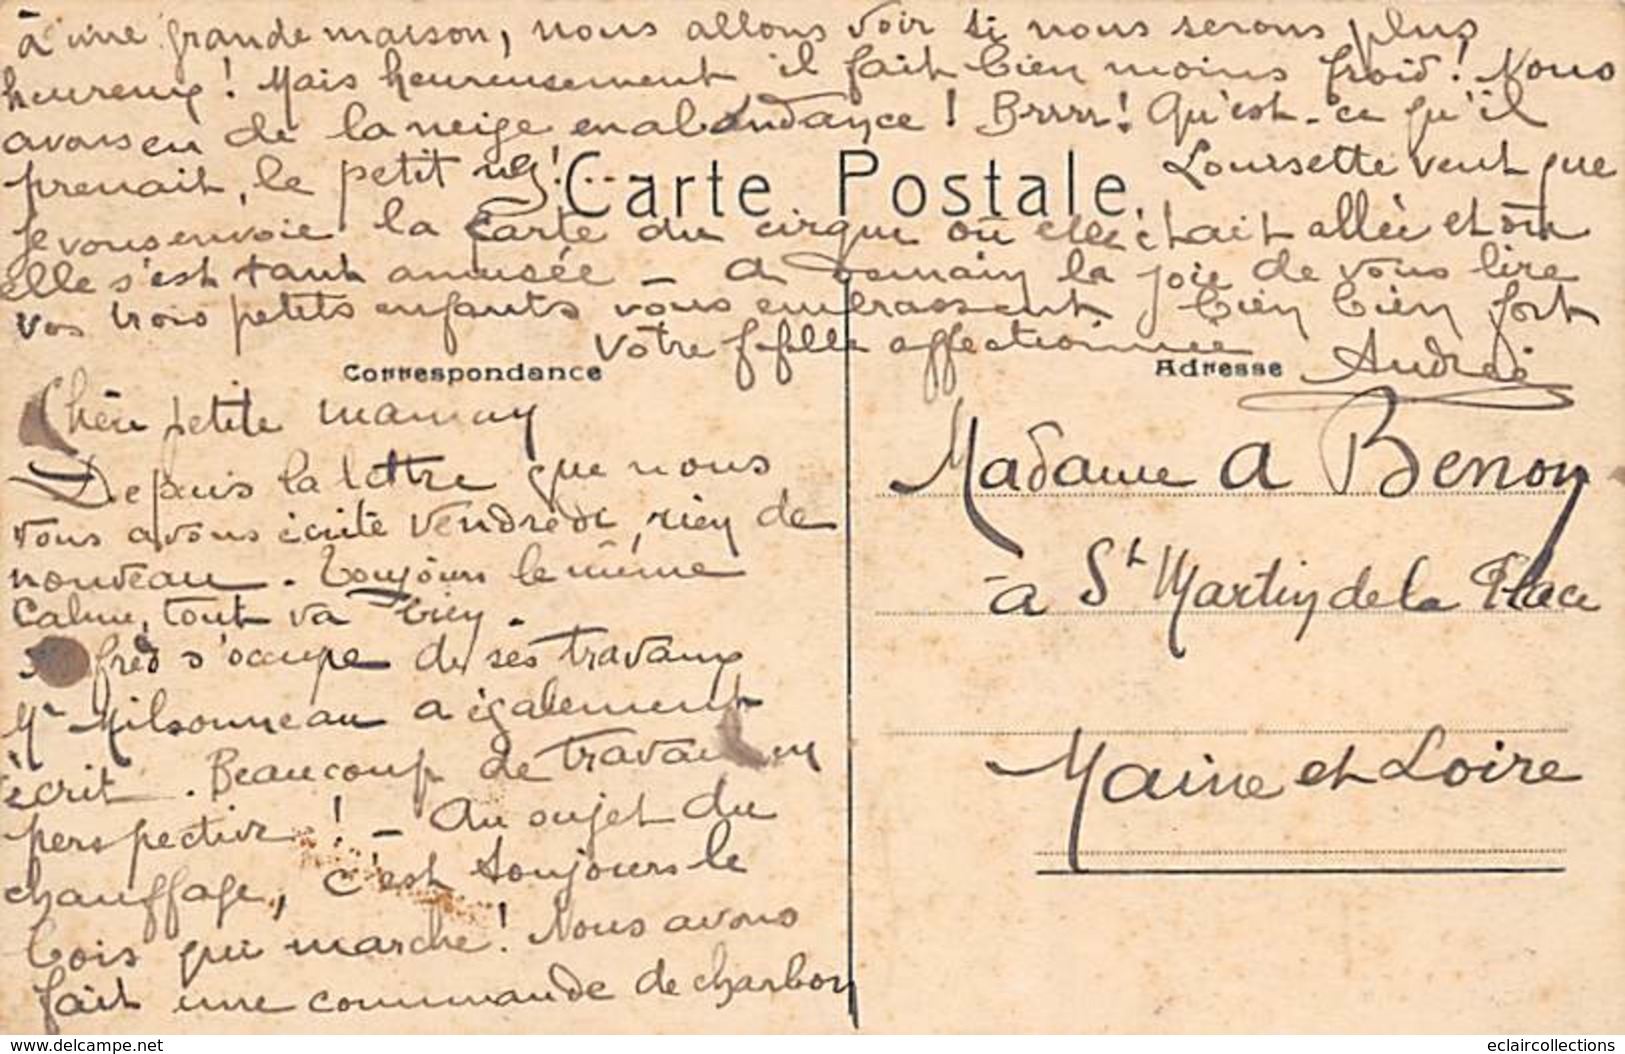 à une grande maison, nous allons voir si nous serons plus
heureux ! Mais heureusement il fait bien moins froid ! Nous
avons eu de la neige en abondance ! Brrrr ! Qu'est-ce qu'il
prenait, le petit nez !... Loursette veut que
Carte Postale
je vous envoie la carte du cirque où elle était allée et où
elle s'est tant amusée – A demain la joie de vous lire
vos trois petits enfants vous embrassent bien bien fort
Votre p. fille affectionnée
Andrée
Correspondance
Chère petite maman
Depuis la lettre que nous
vous avons écrite vendredi, rien de
nouveau. Toujours le même
calme, tout va bien.
fred s'occupe de ses travaux
Mr Milsonneau a également
écrit. Beaucoup de travail en
perspective ! – Au sujet du
chauffage, c'est toujours le
bois qui marche ! Nous avons
fait une commande de charbon
Adresse
Madame A Benon
à St Martin de la Place
Maine et Loire
www.delcampe.net
eclaircollections